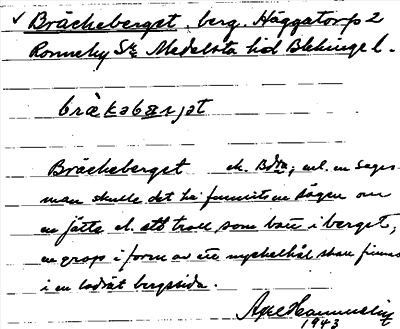 ✓ Bräckeberget, berg. Häggatorp 2
Ronneby Sn Medelsta hd Blekinge l.
brækabærjət
Bräckeberget ek. Bdtn; enl. en sages-
man skulle det ha funnits en sägen om
en jätte el. ett troll som bott i berget,
en grop i form av ett nyckelhål skall finnas
i en lodrät bergssida.
Axel
1943